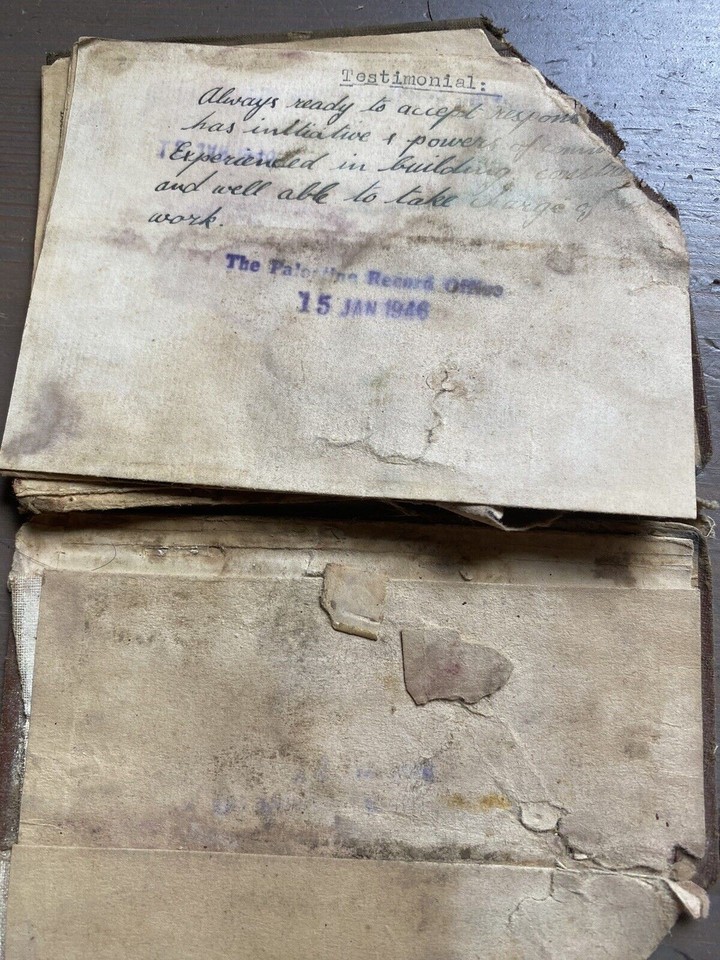 Testimonial:
Always ready to accept respons
has initiative & powers of
Experienced in building
and well able to take charge of
work.
The Palestine Record Office
15 JAN 1946